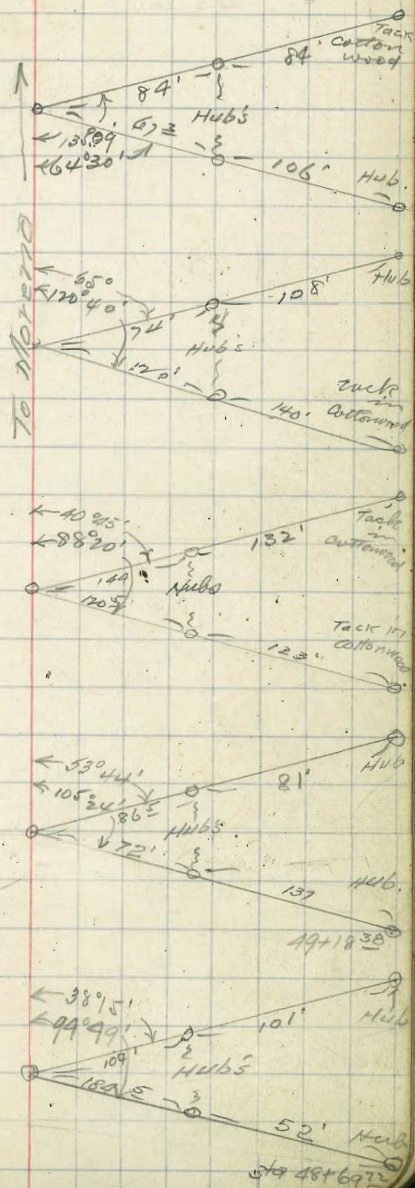 Tack
Cotton
wood
84'
84'
Hub's
67 3
64°30'
106'
Hub.
To Moreno
65°
120°40'
74'
108'
Hub
Hub's
120'
140'
Tack
in
Cottonwood
40°45'
88°20'
132'
Tack
in
Cottonwood
144
Hubs
120 5
123'
Tack in
Cottonwood
53°44'
105°24'
86 5
81'
Hub
Hub's
72'
137
Hub.
49+18 38
38°15'
94°49'
101'
Hub
Hub's
52'
Hub
Sta 48+69 22